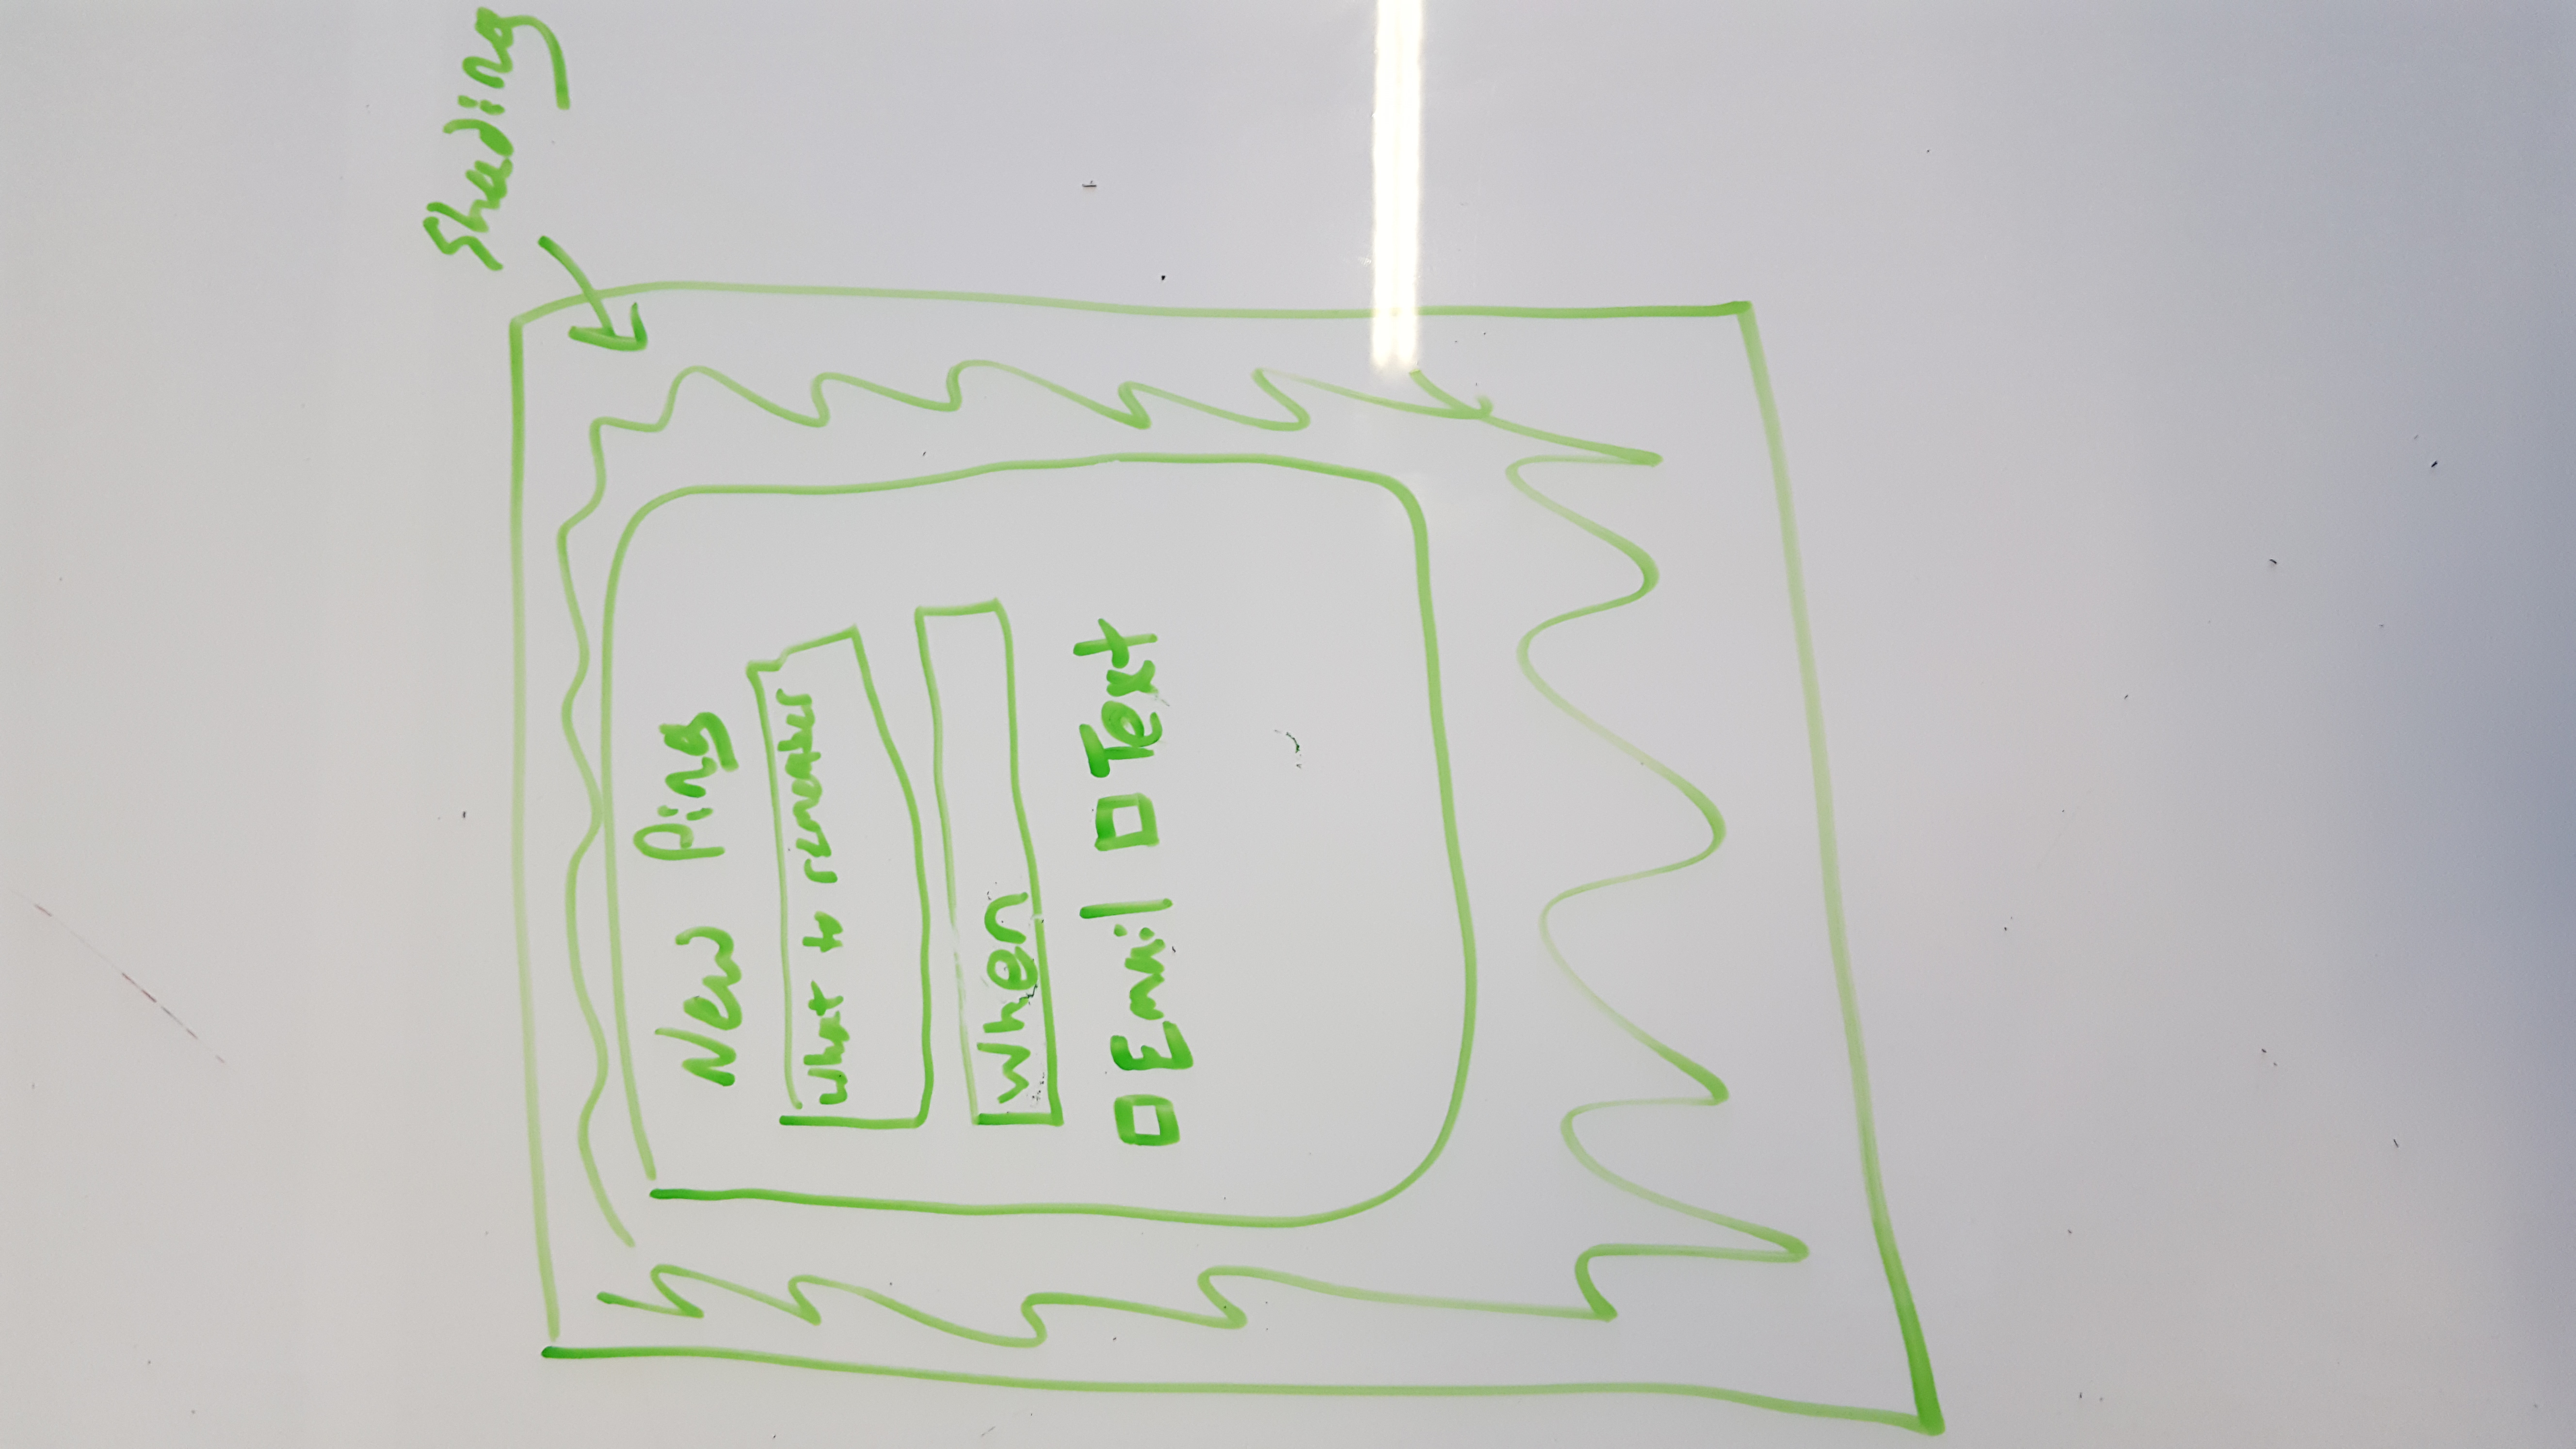 Shading
New Ping
What to remember
When
Email Text